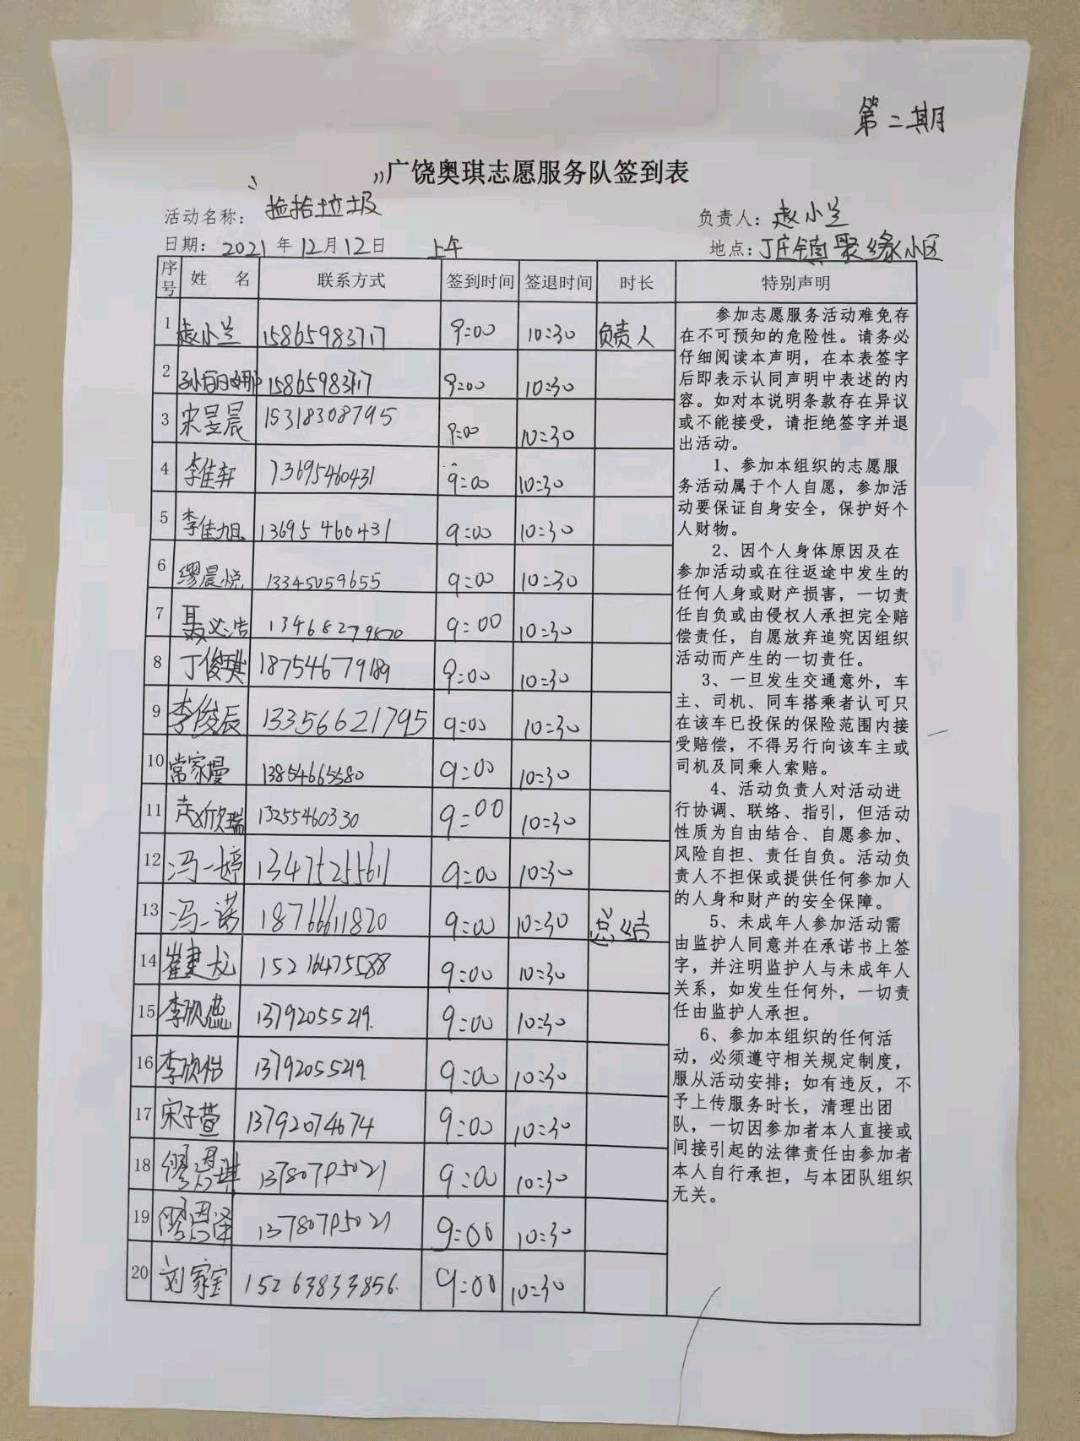 第二期
广饶奥琪志愿服务队签到表
活动名称： 捡拾垃圾 负责人：赵小兰
日期：2021年12月12日 上午 地点：丁庄镇聚缘小区
序号 姓 名 联系方式 签到时间 签退时间 时长 特别声明
1 赵小兰 15865983717 9:00 10:30 负责人
2 15865983717 9:00 10:30
3 宋昱晨 15318308795 9:00 10:30
4 李佳轩 13695460431 9:00 10:30
5 李佳旭 13695460431 9:00 10:30
6 缪晨悦 13345059655 9:00 10:30
7 聂必浩 13468279820 9:00 10:30
8 丁俊琪 18754679189 9:00 10:30
9 李俊辰 13356621795 9:00 10:30
10 常家墁 13854665580 9:00 10:30
11 赵欣瑞 13255460330 9:00 10:30
12 冯一婷 13475255611 9:00 10:30
13 冯一诺 18766611820 9:00 10:30 总结
14 崔建龙 15216475588 9:00 10:30
15 李欣蕊 13792055219. 9:00 10:30
16 李欣怡 13792055219. 9:00 10:30
17 宋子萱 13792074674 9:00 10:30
18 缪恩琪 13780795021 9:00 10:30
19 缪恩泽 13780795021 9:00 10:30
20 刘家宝 15263833856. 9:00 10:30
参加志愿服务活动难免存
在不可预知的危险性。请务必
仔细阅读本声明，在本表签字
后即表示认同声明中表述的内
容。如对本说明条款存在异议
或不能接受，请拒绝签字并退
出活动。
1、参加本组织的志愿服
务活动属于个人自愿，参加活
动要保证自身安全，保护好个
人财物。
2、因个人身体原因及在
参加活动或在往返途中发生的
任何人身或财产损害，一切责
任自负或由侵权人承担完全赔
偿责任，自愿放弃追究因组织
活动而产生的一切责任。
3、一旦发生交通意外，车
主、司机、同车搭乘者认可只
在该车已投保的保险范围内接
受赔偿，不得另行向该车主或
司机及同乘人索赔。
4、活动负责人对活动进
行协调、联络、指引，但活动
性质为自由结合、自愿参加、
风险自担、责任自负。活动负
责人不担保或提供任何参加人
的人身和财产的安全保障。
5、未成年人参加活动需
由监护人同意并在承诺书上签
字，并注明监护人与未成年人
关系，如发生任何外，一切责
任由监护人承担。
6、参加本组织的任何活
动，必须遵守相关规定制度，
服从活动安排；如有违反，不
予上传服务时长，清理出团
队，一切因参加者本人直接或
间接引起的法律责任由参加者
本人自行承担，与本团队组织
无关。